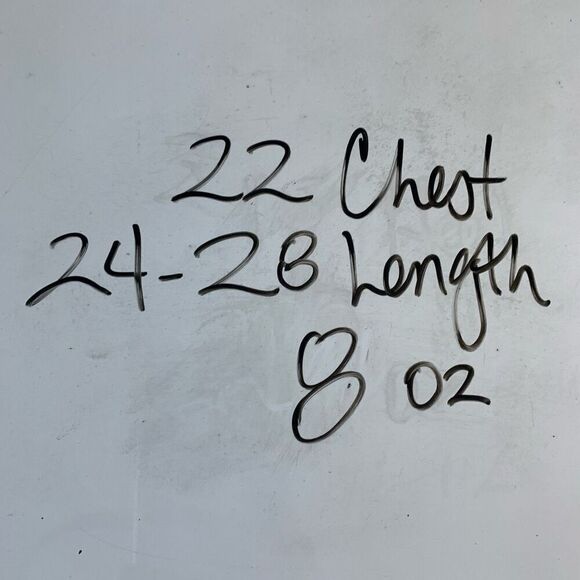 22 Chest
24-28 Length
8 oz